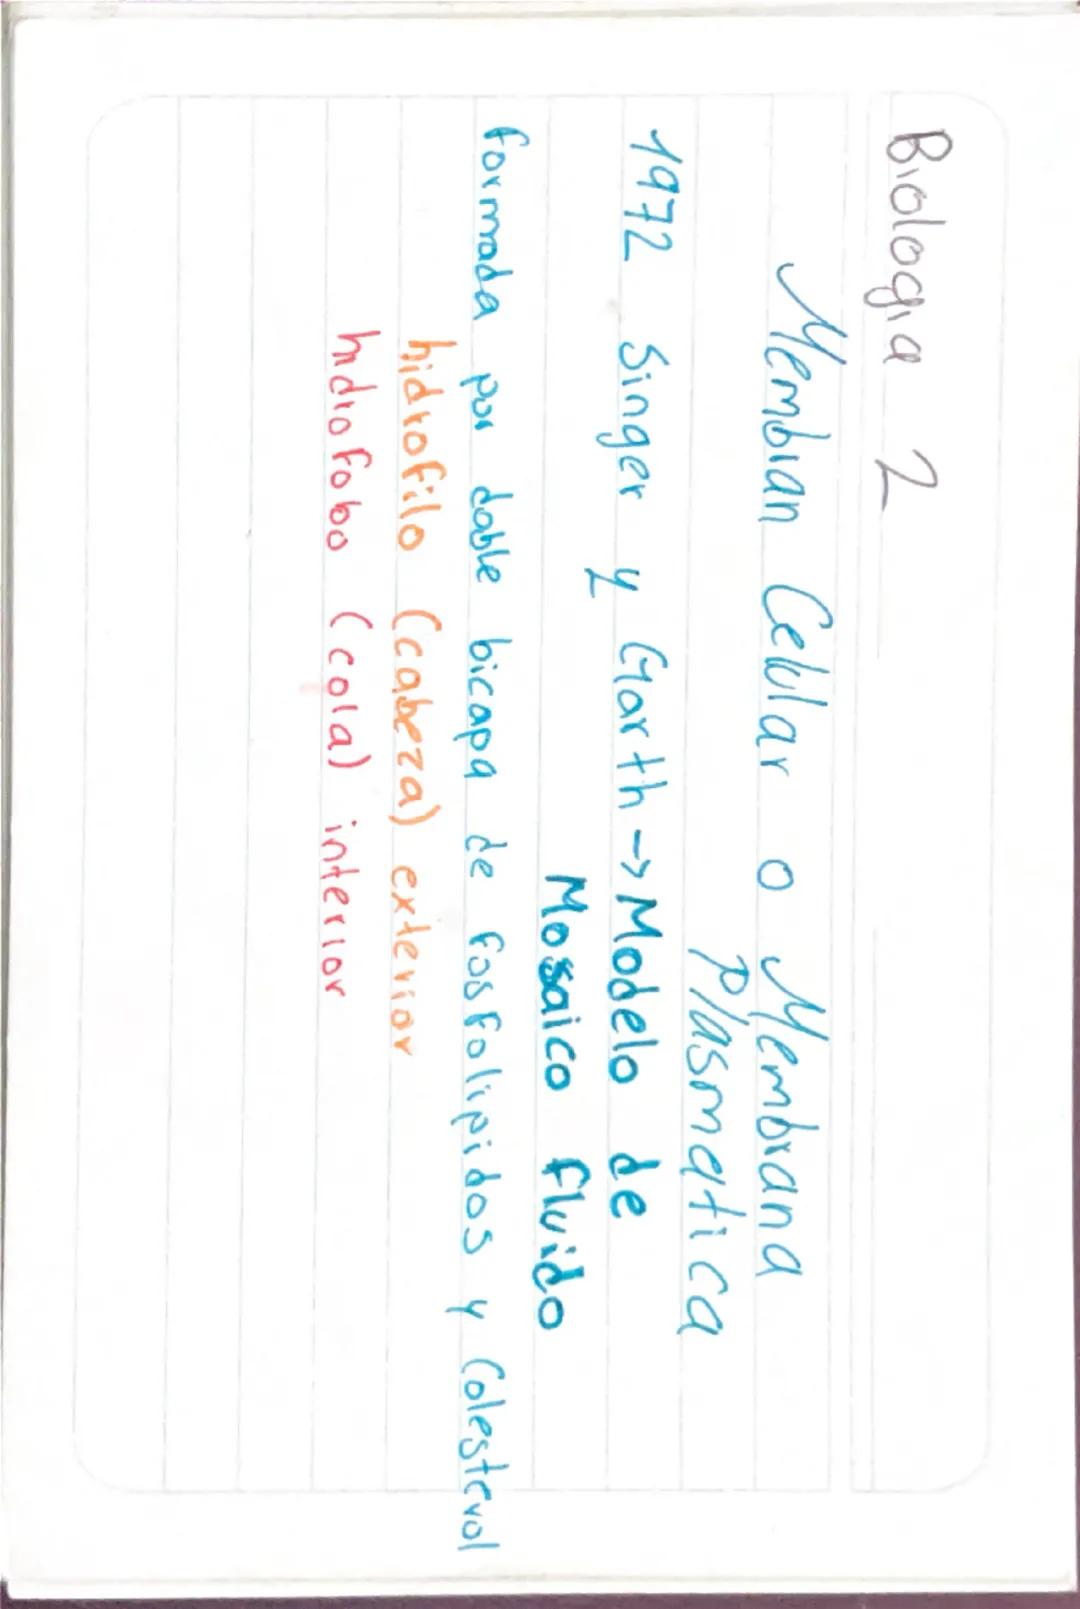 Biologia 2
Membran Celular o Membrana
Plasmatica
1972 Singer y Garth -> Modelo de
Mosaico fluido
formada por doble bicapa de fosfolipidos y Colesterol
hidrofilo (cabeza) exterior
hidrofobo (cola) interior